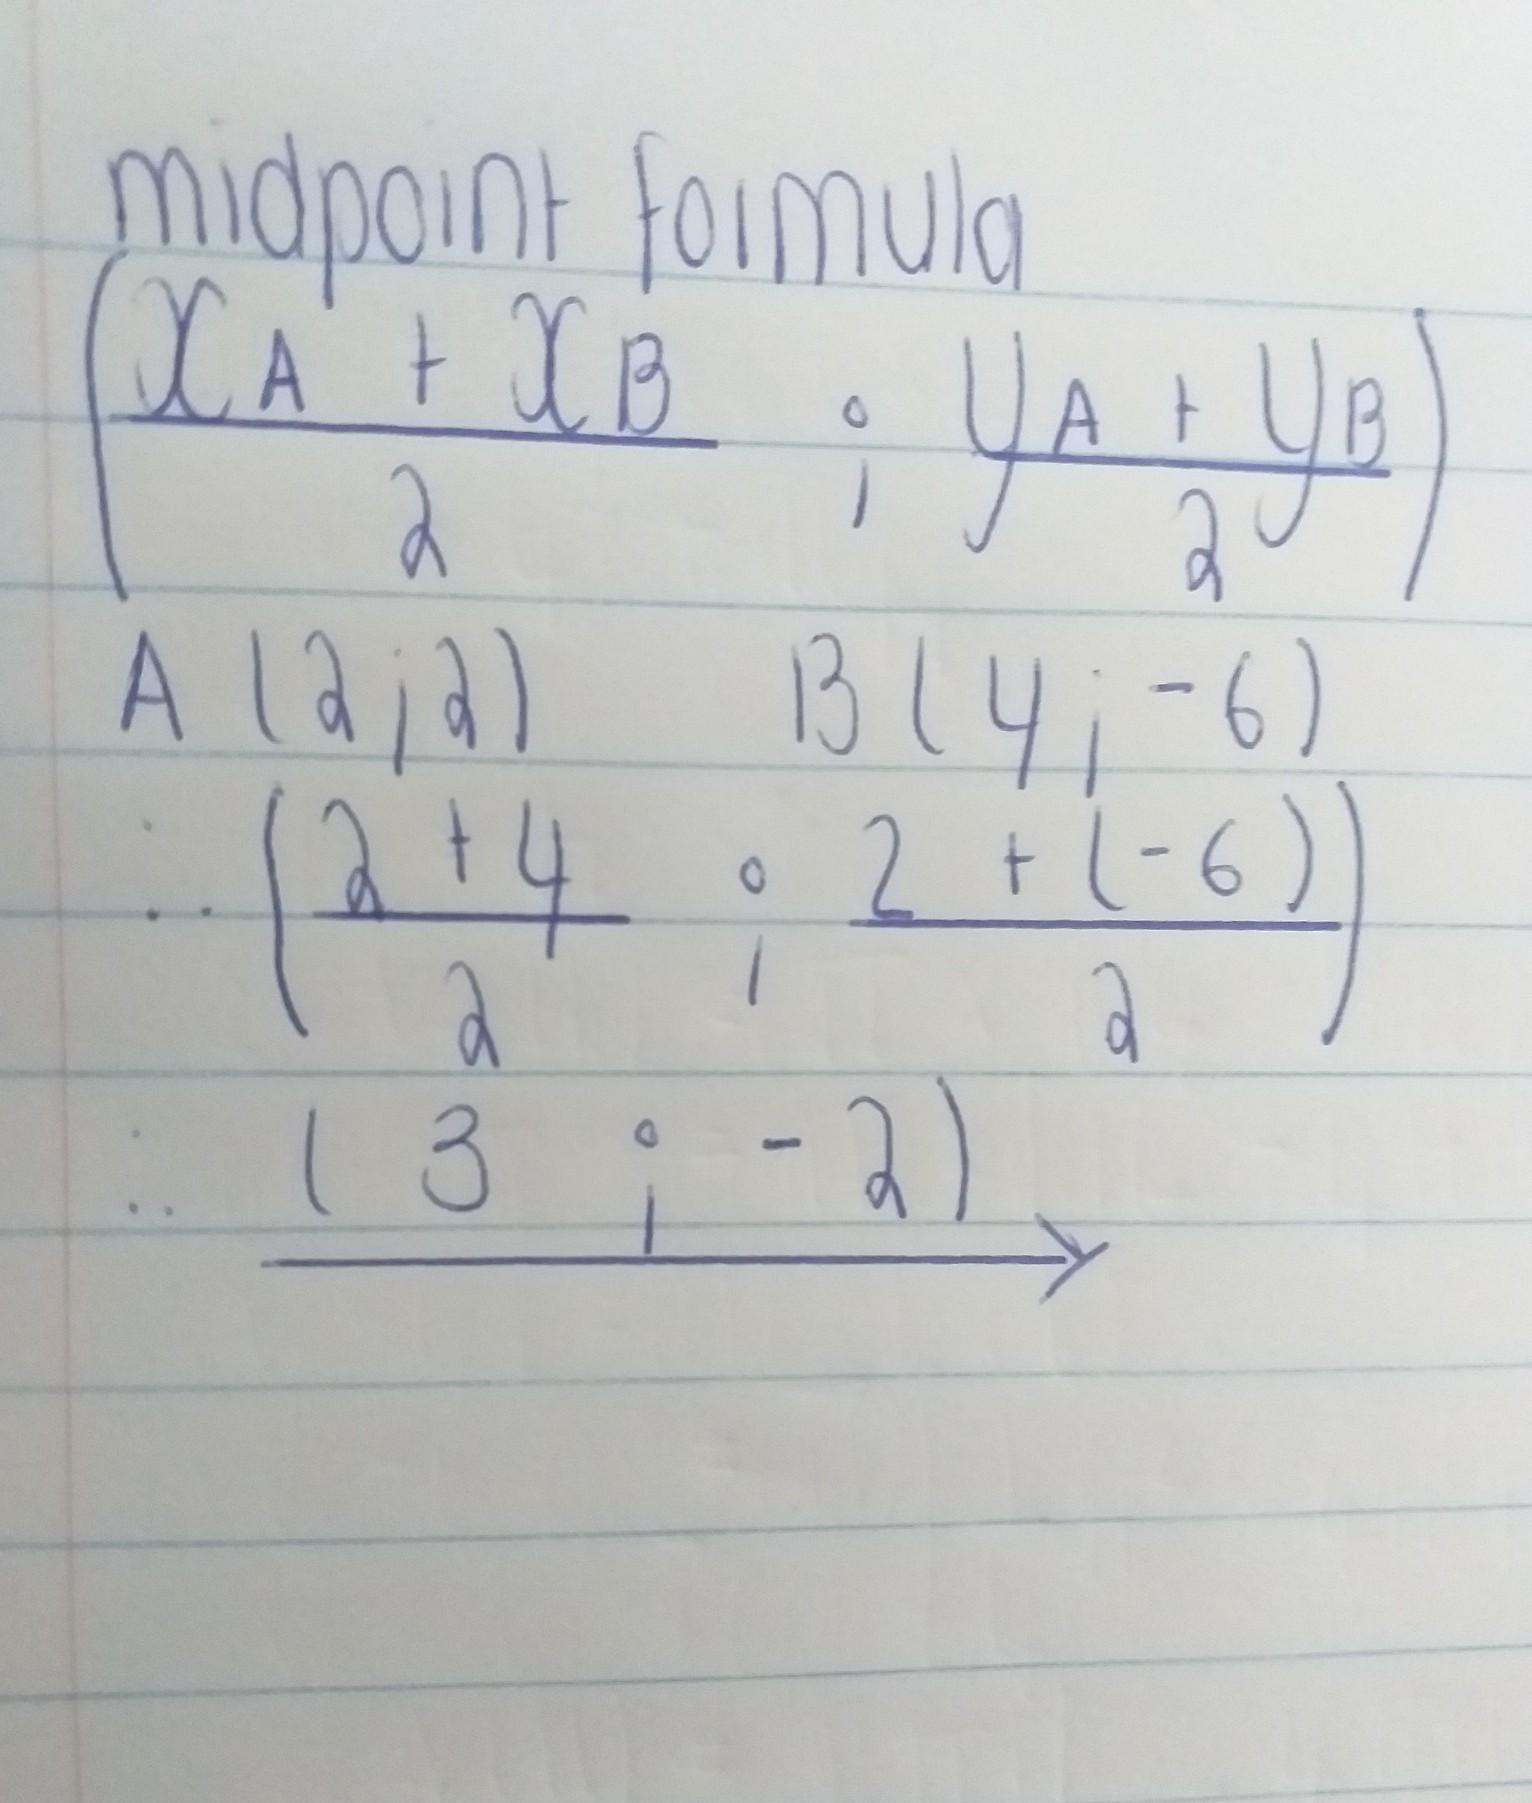 midpoint formula
(xA + xB / 2 ; yA + yB / 2)
A (2;2) B (4;-6)
∴ (2 + 4 / 2 ; 2 + (-6) / 2)
∴ (3 ; -2)